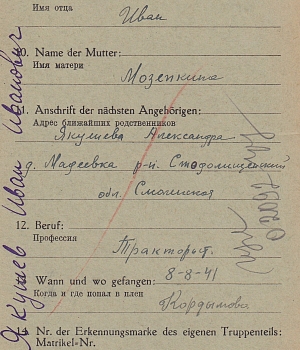 Имя отца
Иван
Name der Mutter:
Имя матери
Мозепкина
Anschrift der nächsten Angehörigen:
Адрес ближайших родственников
Якушева Александра
д. Мадеевка р-н.
обл. Смоленская
12. Beruf:
Профессия
Тракторист.
Wann und wo gefangen: 8-8-41
Когда и где попал в плен
Кордымово
Nr. der Erkennungsmarke des eigenen Truppenteils:
Matrikel-Nr.
Якушев Иван Иванович